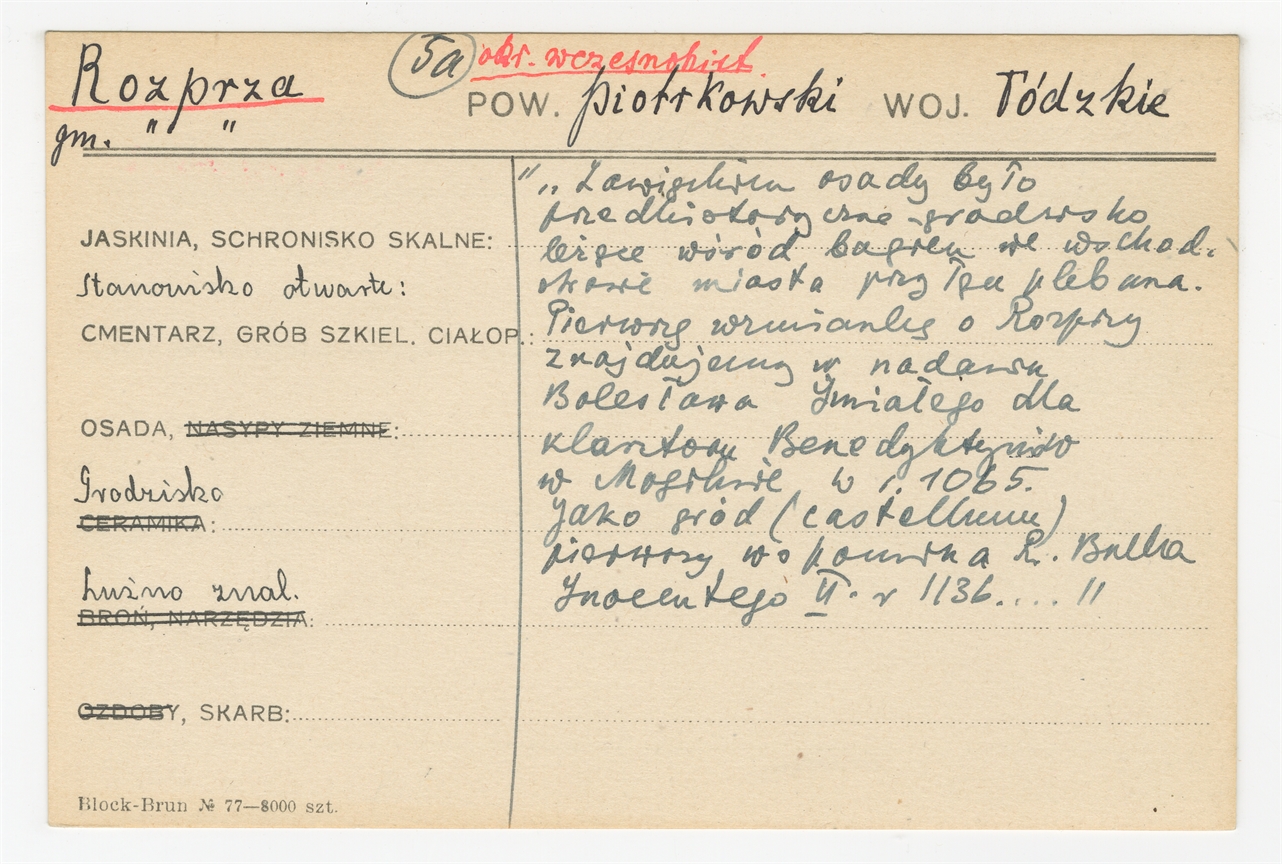 Rozprza
gm. " "
5a
okr. wczesnohist.
POW. piotrkowski WOJ. Łódzkie
JASKINIA, SCHRONISKO SKALNE:
Stanowisko otwarte:
CMENTARZ, GRÓB SZKIEL. CIAŁOP.:
OSADA, NASYPY ZIEMNE:
Grodzisko
CERAMIKA:
Luźno znal.
BROŃ, NARZĘDZIA:
OZDOBY, SKARB:
Block-Brun № 77—8000 szt.
" „ Zawiązkiem osady było
przedhistoryczne grodzisko
leżące wśród bagien we wschod.
stronie miasta przy łące plebana.
Pierwszą wzmiankę o Rozprzy
znajdujemy w nadaniu
Bolesława Śmiałego dla
klasztoru Benedyktynów
w Mogilnie w r. 1065.
Jako gród (castellum)
pierwszy wspomina R. Bulla
Inocentego II. r 1136.... "